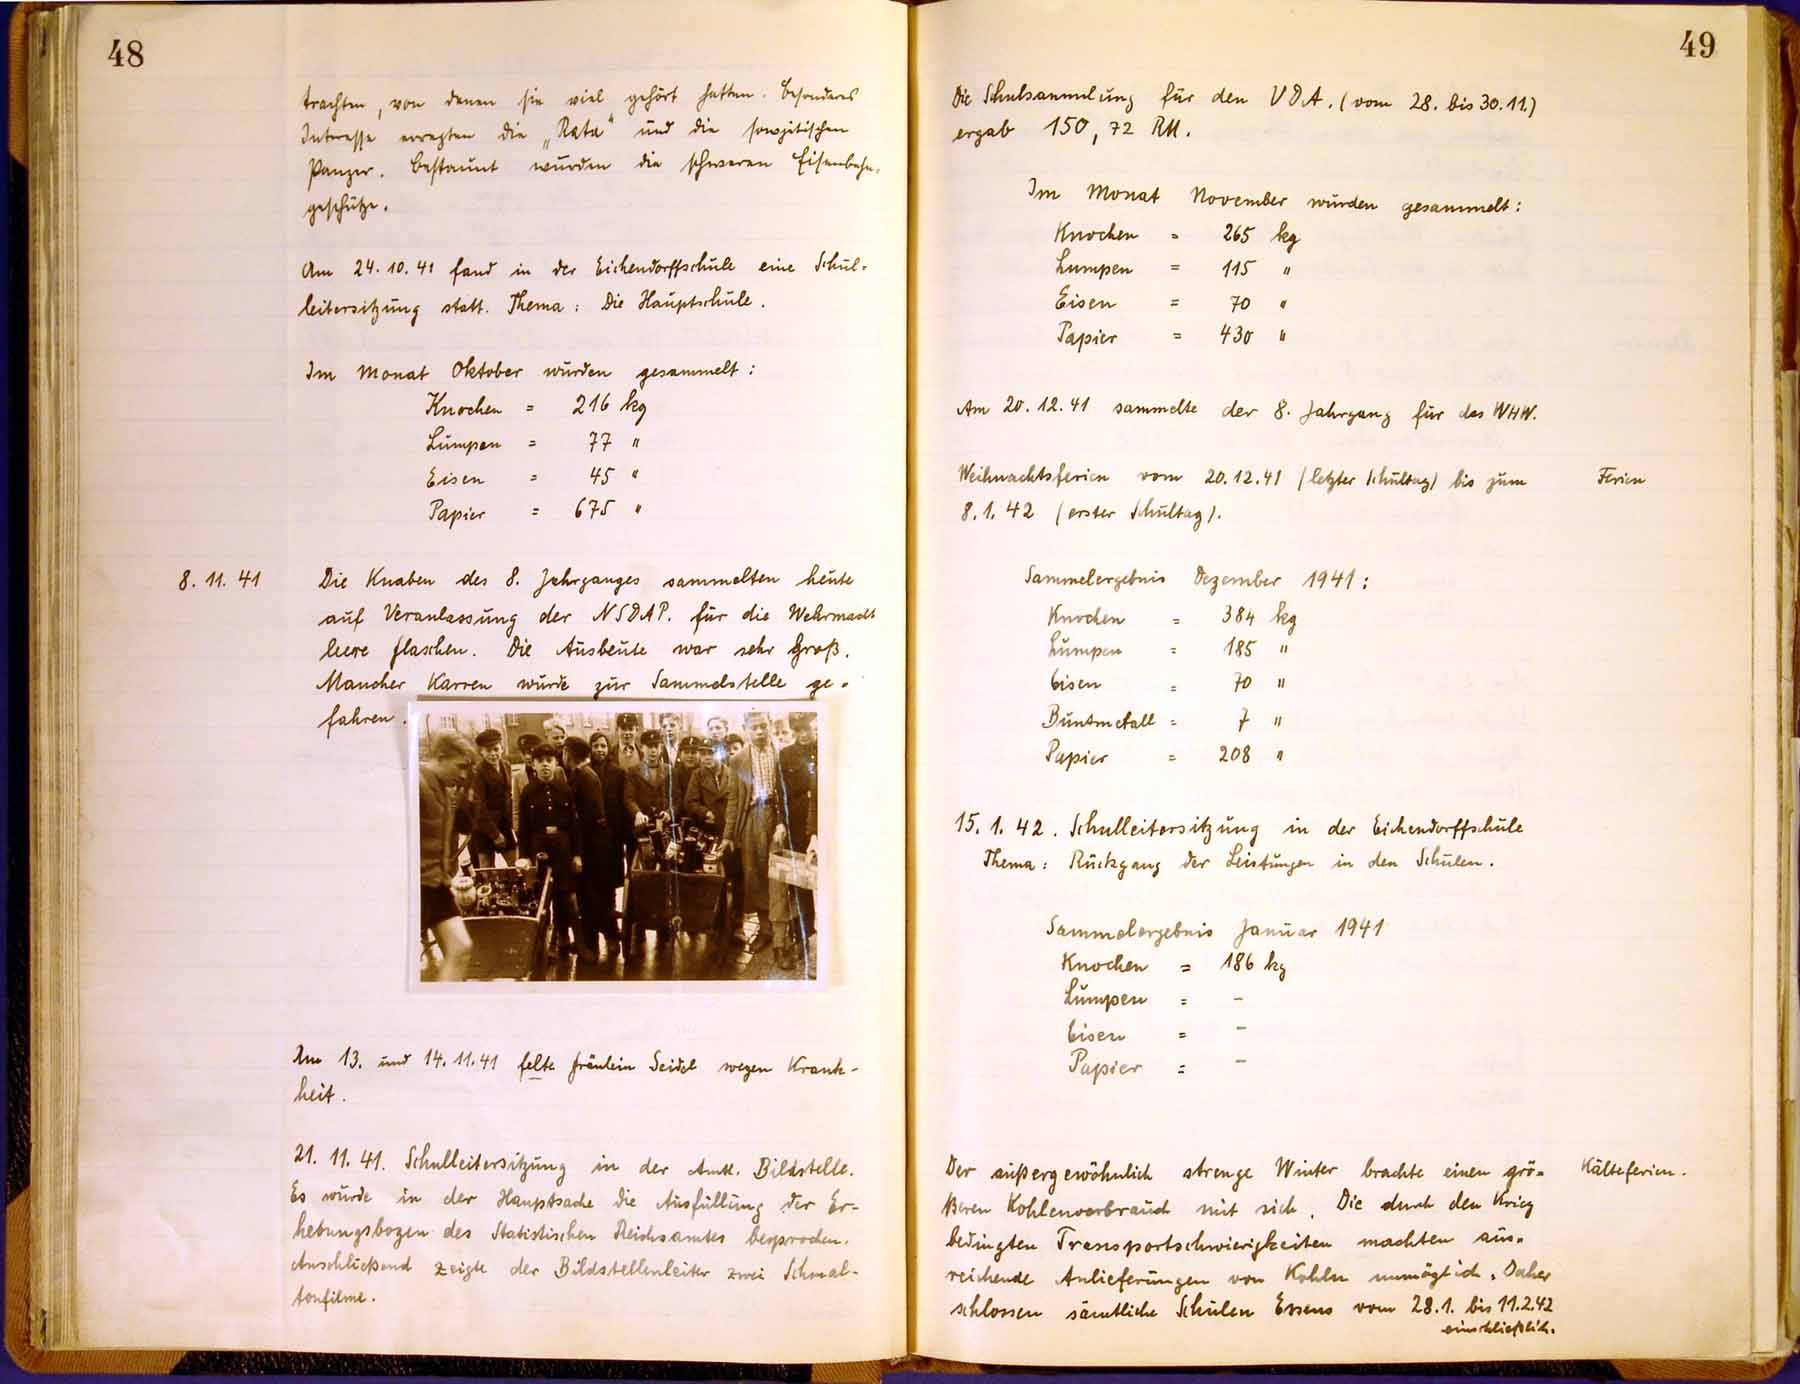 48
trachten, von denen sie viel gehört hatten. Besonderes
Interesse erregten die „Rata" und die sowjitischen
Panzer. Bestaunt wurden die schweren Eisenbahn-
geschütze.
Am 24.10.41 fand in der Eichendorffschule eine Schul-
leitersitzung statt. Thema: Die Hauptschule.
Im Monat Oktober wurden gesammelt:
Knochen = 216 kg
Lumpen = 77 "
Eisen = 45 "
Papier = 675 "
8.11.41
Die Knaben des 8. Jahrganges sammelten heute
auf Veranlassung der NSDAP. für die Wehrmacht
leere Flaschen. Die Ausbeute war sehr Groß.
Mancher Karren wurde zur Sammelstelle ge-
fahren.
Am 13. und 14.11.41 felte Fräulein Seidel wegen Krank-
heit.
21.11.41. Schulleitersitzung in der Amtl. Bildstelle.
Es wurde in der Hauptsache die Ausfüllung der Er-
hebungsbogen des Statistischen Reichsamtes besproden.
Anschließend zeigte der Bildstellenleiter zwei Schmal-
tonfilme.
49
Die Schulsammlung für den VDA. (vom 28. bis 30.11.)
ergab 150,72 RM.
Im Monat November wurden gesammelt:
Knochen = 265 kg
Lumpen = 115 "
Eisen = 70 "
Papier = 430 "
Am 20.12.41 sammelte der 8. Jahrgang für das WHW.
Weihnachtsferien vom 20.12.41 (letzter Schultag) bis zum
Ferien
8.1.42 (erster Schultag).
Sammelergebnis Dezember 1941:
Knochen = 384 kg
Lumpen = 185 "
Eisen = 70 "
Buntmetall = 7 "
Papier = 208 "
15.1.42. Schulleitersitzung in der Eichendorffschule
Thema: Rückgang der Leistungen in den Schulen.
Sammelergebnis Januar 1941
Knochen = 186 kg
Lumpen = -
Eisen = -
Papier = -
Der außergewöhnlich strenge Winter brachte einen grö-
Kälteferien.
ßeren Kohlenverbrauch mit sich. Die durch den Krieg
bedingten Transportschwierigkeiten machten aus-
reichende Anlieferungen von Kohlen unmöglich. Daher
schlossen sämtliche Schulen Essens vom 28.1. bis 11.2.42
einschließlich.